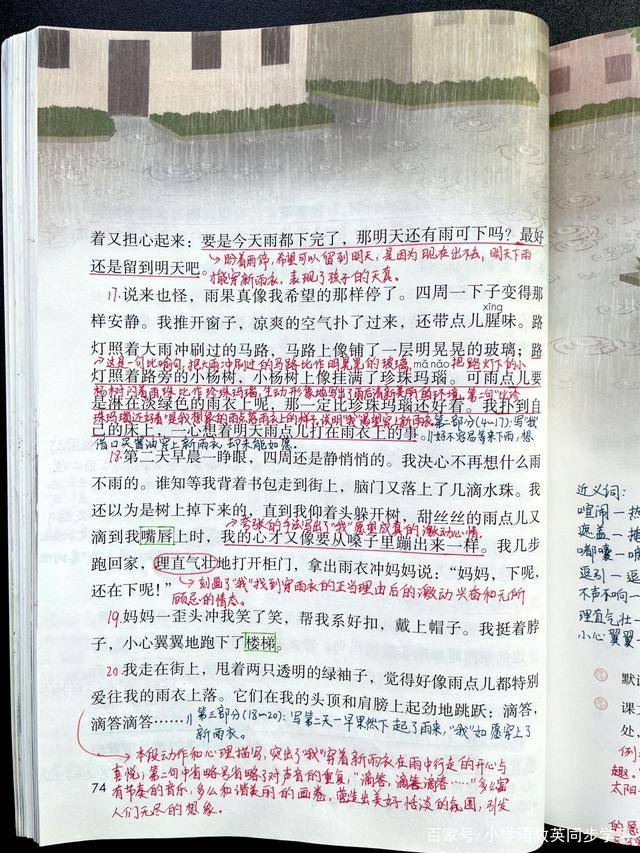 着又担心起来：要是今天雨都下完了，那明天还有雨可下吗？最好
还是留到明天吧。
盼着雨停，希望可以留到明天，是因为现在出不去，明天下雨
才能穿新雨衣，表现了孩子的天真。
17.说来也怪，雨果真像我希望的那样停了。四周一下子变得那
xīng
样安静。我推开窗子，凉爽的空气扑了过来，还带点儿腥味。路
灯照着大雨冲刷过的马路，马路上像铺了一层明晃晃的玻璃；路
这是一句比喻句，把大雨冲刷过的马路比作明晃晃的玻璃，把路灯下的小
mǎ nǎo
灯照着路旁的小杨树，小杨树上像挂满了珍珠玛瑙。可雨点儿要
杨树闪着雨珠比作珍珠玛瑙，生动形象地写出了雨后清新美丽的环境。第二句"比珍
是淋在淡绿色的雨衣上呢，那一定比珍珠玛瑙还好看。我扑到自
珠玛瑙还好看"是我想象的雨点落雨衣上的样子，说明"我"渴望穿上新雨衣
第二部分(4—17)：写"我"
己的床上，一心想着明天雨点儿打在雨衣上的事。
好不容易等来下雨，想
借口买酱油穿上新雨衣，却未能如愿。
18.第二天早晨一睁眼，四周还是静悄悄的。我决心不再想什么雨
不雨的。谁知等我背着书包走到街上，脑门又落上了几滴水珠。我
还以为是树上掉下来的，直到我仰着头躲开树，甜丝丝的雨点儿又
夸张的手法写出了"我"愿望成真的激动心情。
滴到我嘴唇上时，我的心才又像要从嗓子里蹦出来一样。我几步
跑回家，理直气壮地打开柜门，拿出雨衣冲妈妈说："妈妈，下呢，
还在下呢！"
刻画了"我"找到穿雨衣的正当理由后的激动兴奋和无所
顾忌的情态。
19.妈妈一歪头冲我笑了笑，帮我系好扣，戴上帽子。我挺着脖
子，小心翼翼地跑下了楼梯。
20.我走在街上，甩着两只透明的绿袖子，觉得好像雨点儿都特别
爱往我的雨衣上落。它们在我的头顶和肩膀上起劲地跳跃：滴答，
滴答滴答……
第三部分(18—20)：写第二天一早果然下起了雨来，"我"如愿穿上了
新雨衣。
本段动作和心理描写，突出了"我"穿着新雨衣在雨中行走的开心与
喜悦；第二句中省略号省略了对声音的重复，"滴答，滴答滴答……"多么富
有节奏的音乐，多么和谐美丽的画卷，营造出美好恬淡的氛围，引发
人们无尽的想象。
74
近义词：
喧闹—热
遮盖—掩
嘟囔—咕
逗引—逗
不声不响—
理直气壮—
小心翼翼—
默
课文
处，
例
趣。
太阳
的意
百家号/小学语数英同步学